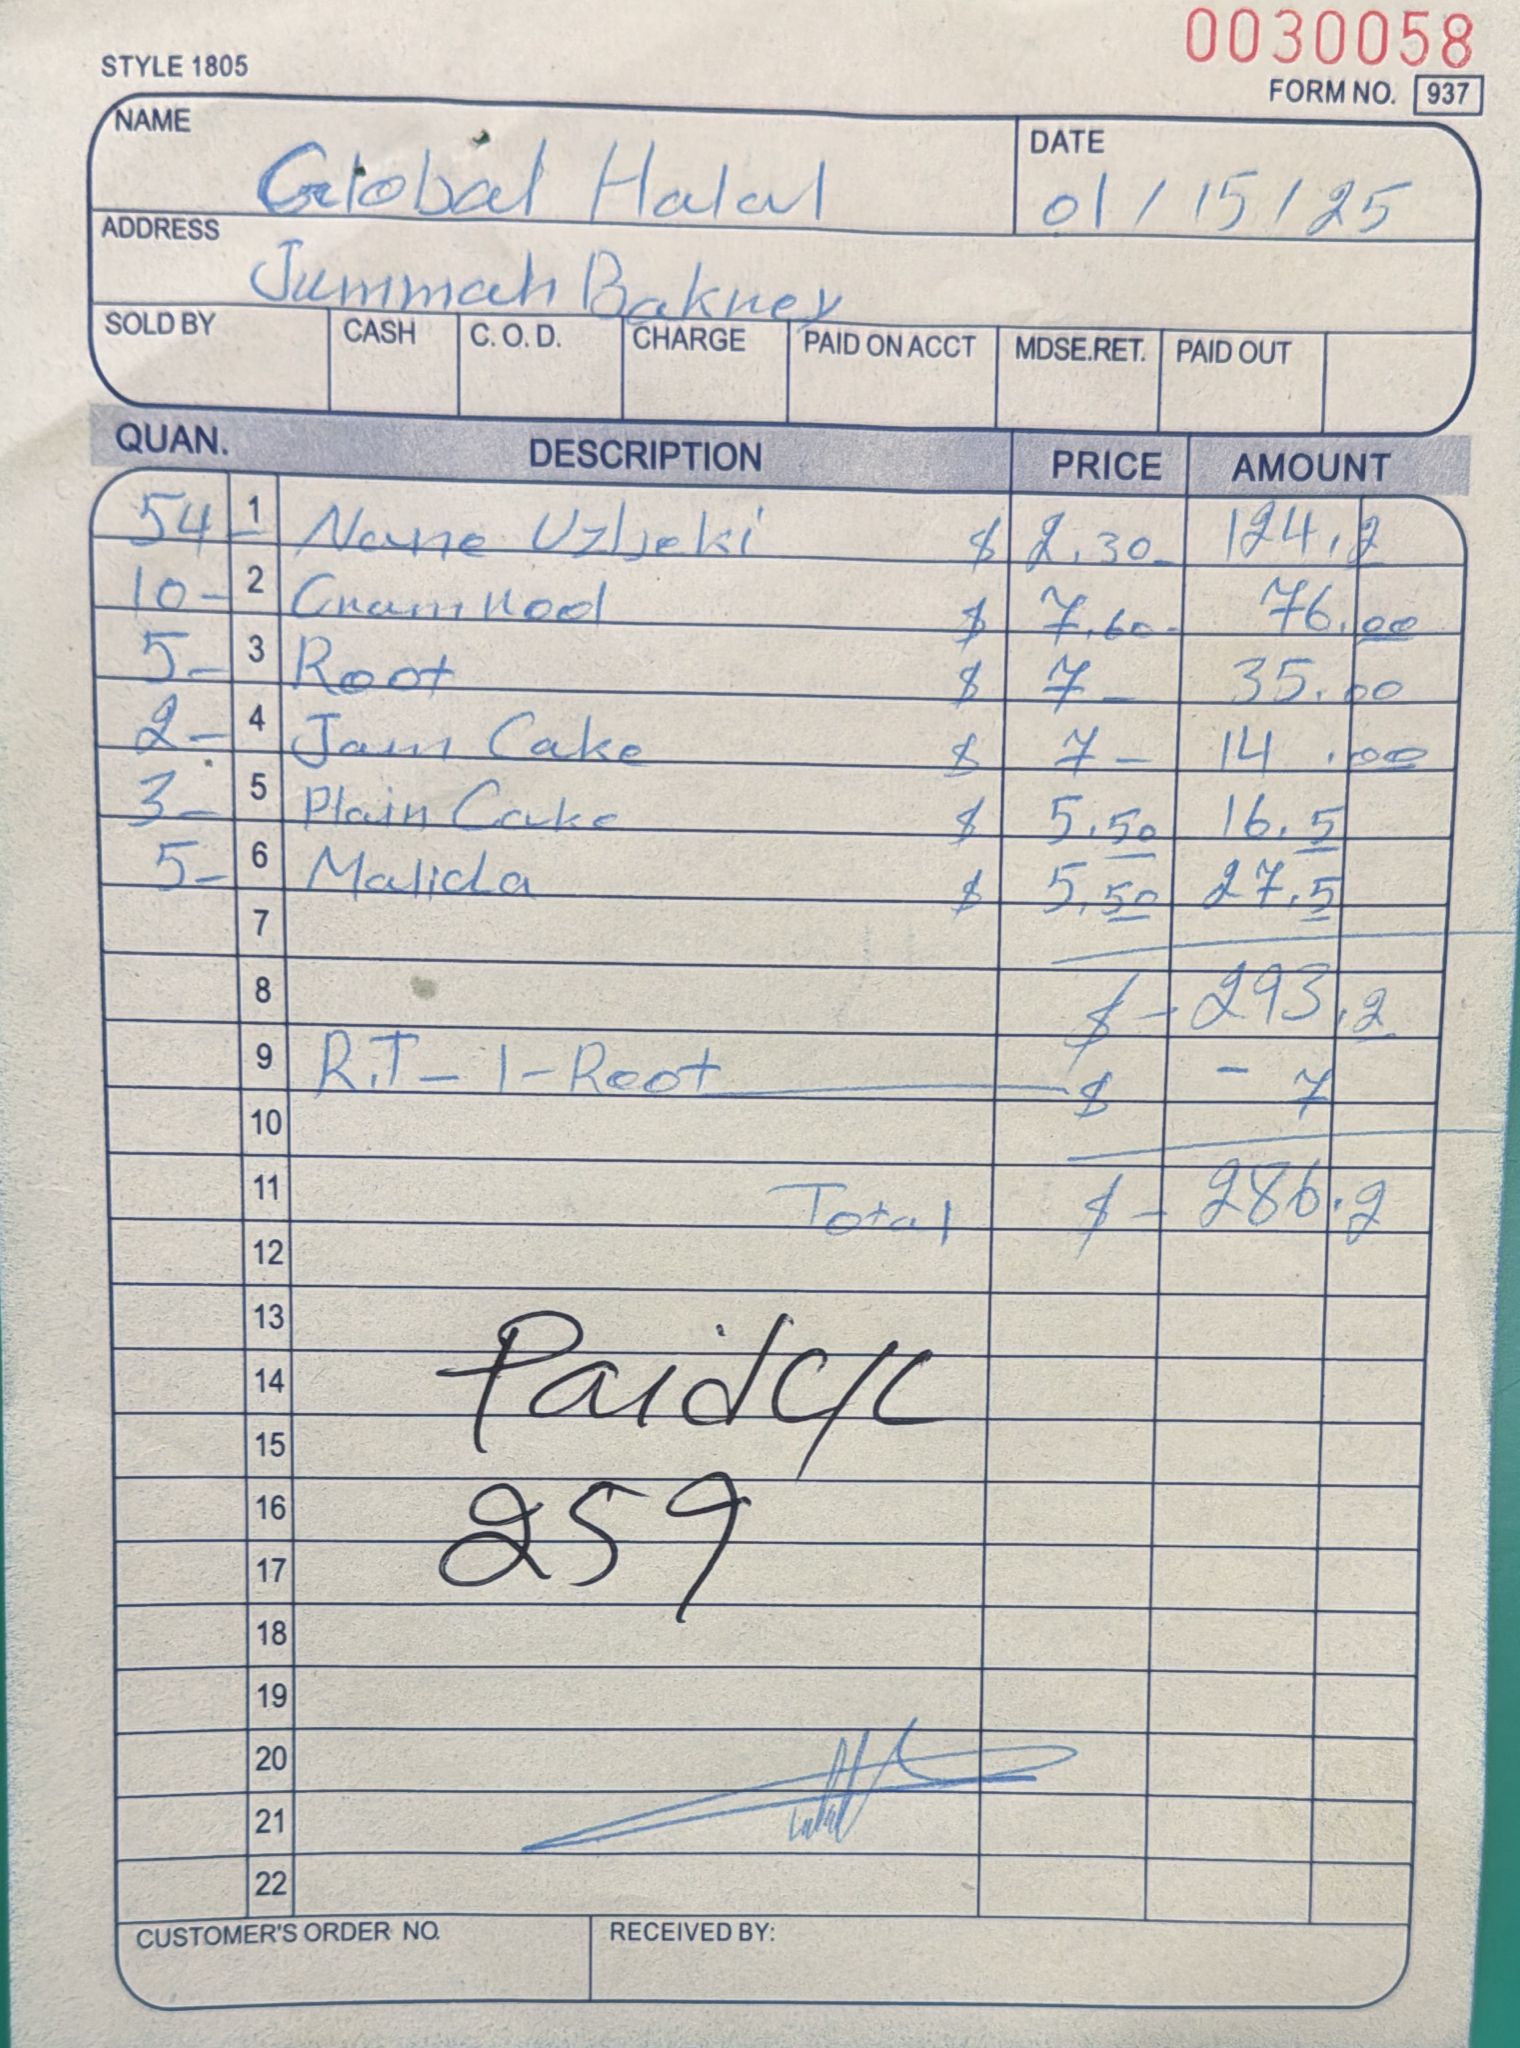 0030058
STYLE 1805
FORM NO. 937
NAME Global Halal DATE 01/15/25
ADDRESS Jummah Bakney
SOLD BY CASH C. O. D. CHARGE PAID ON ACCT MDSE.RET. PAID OUT
QUAN. DESCRIPTION PRICE AMOUNT
54- 1 Nane Uzbeki $ 2.30- 124.2
10- 2 $ 7.60- 76.00
5- 3 Root $ 7- 35.00
2- 4 Jam Cake $ 7- 14.00
3- 5 Plain Cake $ 5.50 16.5
5- 6 Malida $ 5.50 27.5
7
8 $- 293.2
9 R.T- 1-Root $ -7
10
11 Total $- 286.2
12
13
14 Paid c/c
15
16 259
17
18
19
20
21
22
CUSTOMER'S ORDER NO. RECEIVED BY: